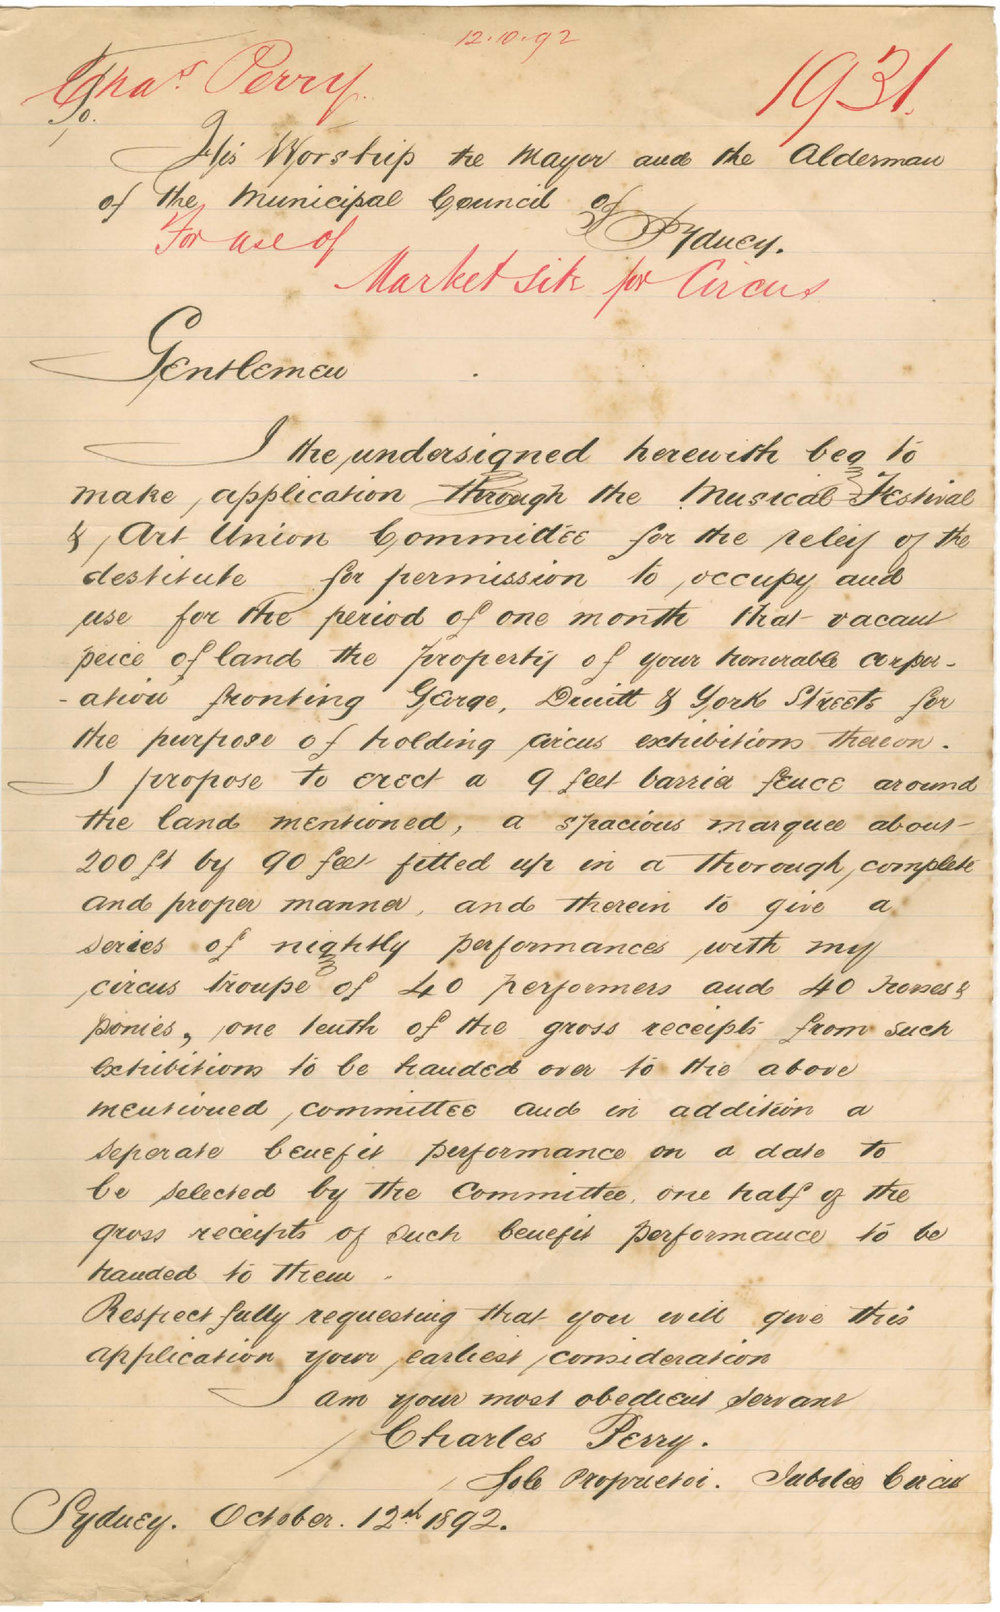 12.10.92
Chas. Perry.
1931.
To.
His Worship the Mayor and the Alderman
of the Municipal Council of
Sydney.
For use of
Market site for Circus
Gentlemen
I the undersigned herewith beg to
make application through the Musical Festival
& Art Union Committee for the releif of the
destitute for permission to occupy and
use for the period of one month that vacant
peice of land the property of your honorable corpor-
-ation fronting George, Druitt & York Streets for
the purpose of holding circus exhibitions thereon.
I propose to erect a 9 feet barrier fence around
the land mentioned, a spacious marquee about
200 ft by 90 feet fitted up in a thorough, complete
and proper manner, and therein to give a
series of nightly performances with my
circus troupe of 40 performers and 40 horses &
ponies, one tenth of the gross receipts from such
exhibitions to be handed over to the above
mentioned committee and in addition a
seperate benefit performance on a date to
be selected by the Committee, one half of the
gross receipts of such benefit performance to be
handed to them.
Respectfully requesting that you will give this
application your earliest consideration
I am your most obedient servant
Charles Perry.
Sole Proprietor. Jubilee Circus
Sydney. October. 12th 1892.